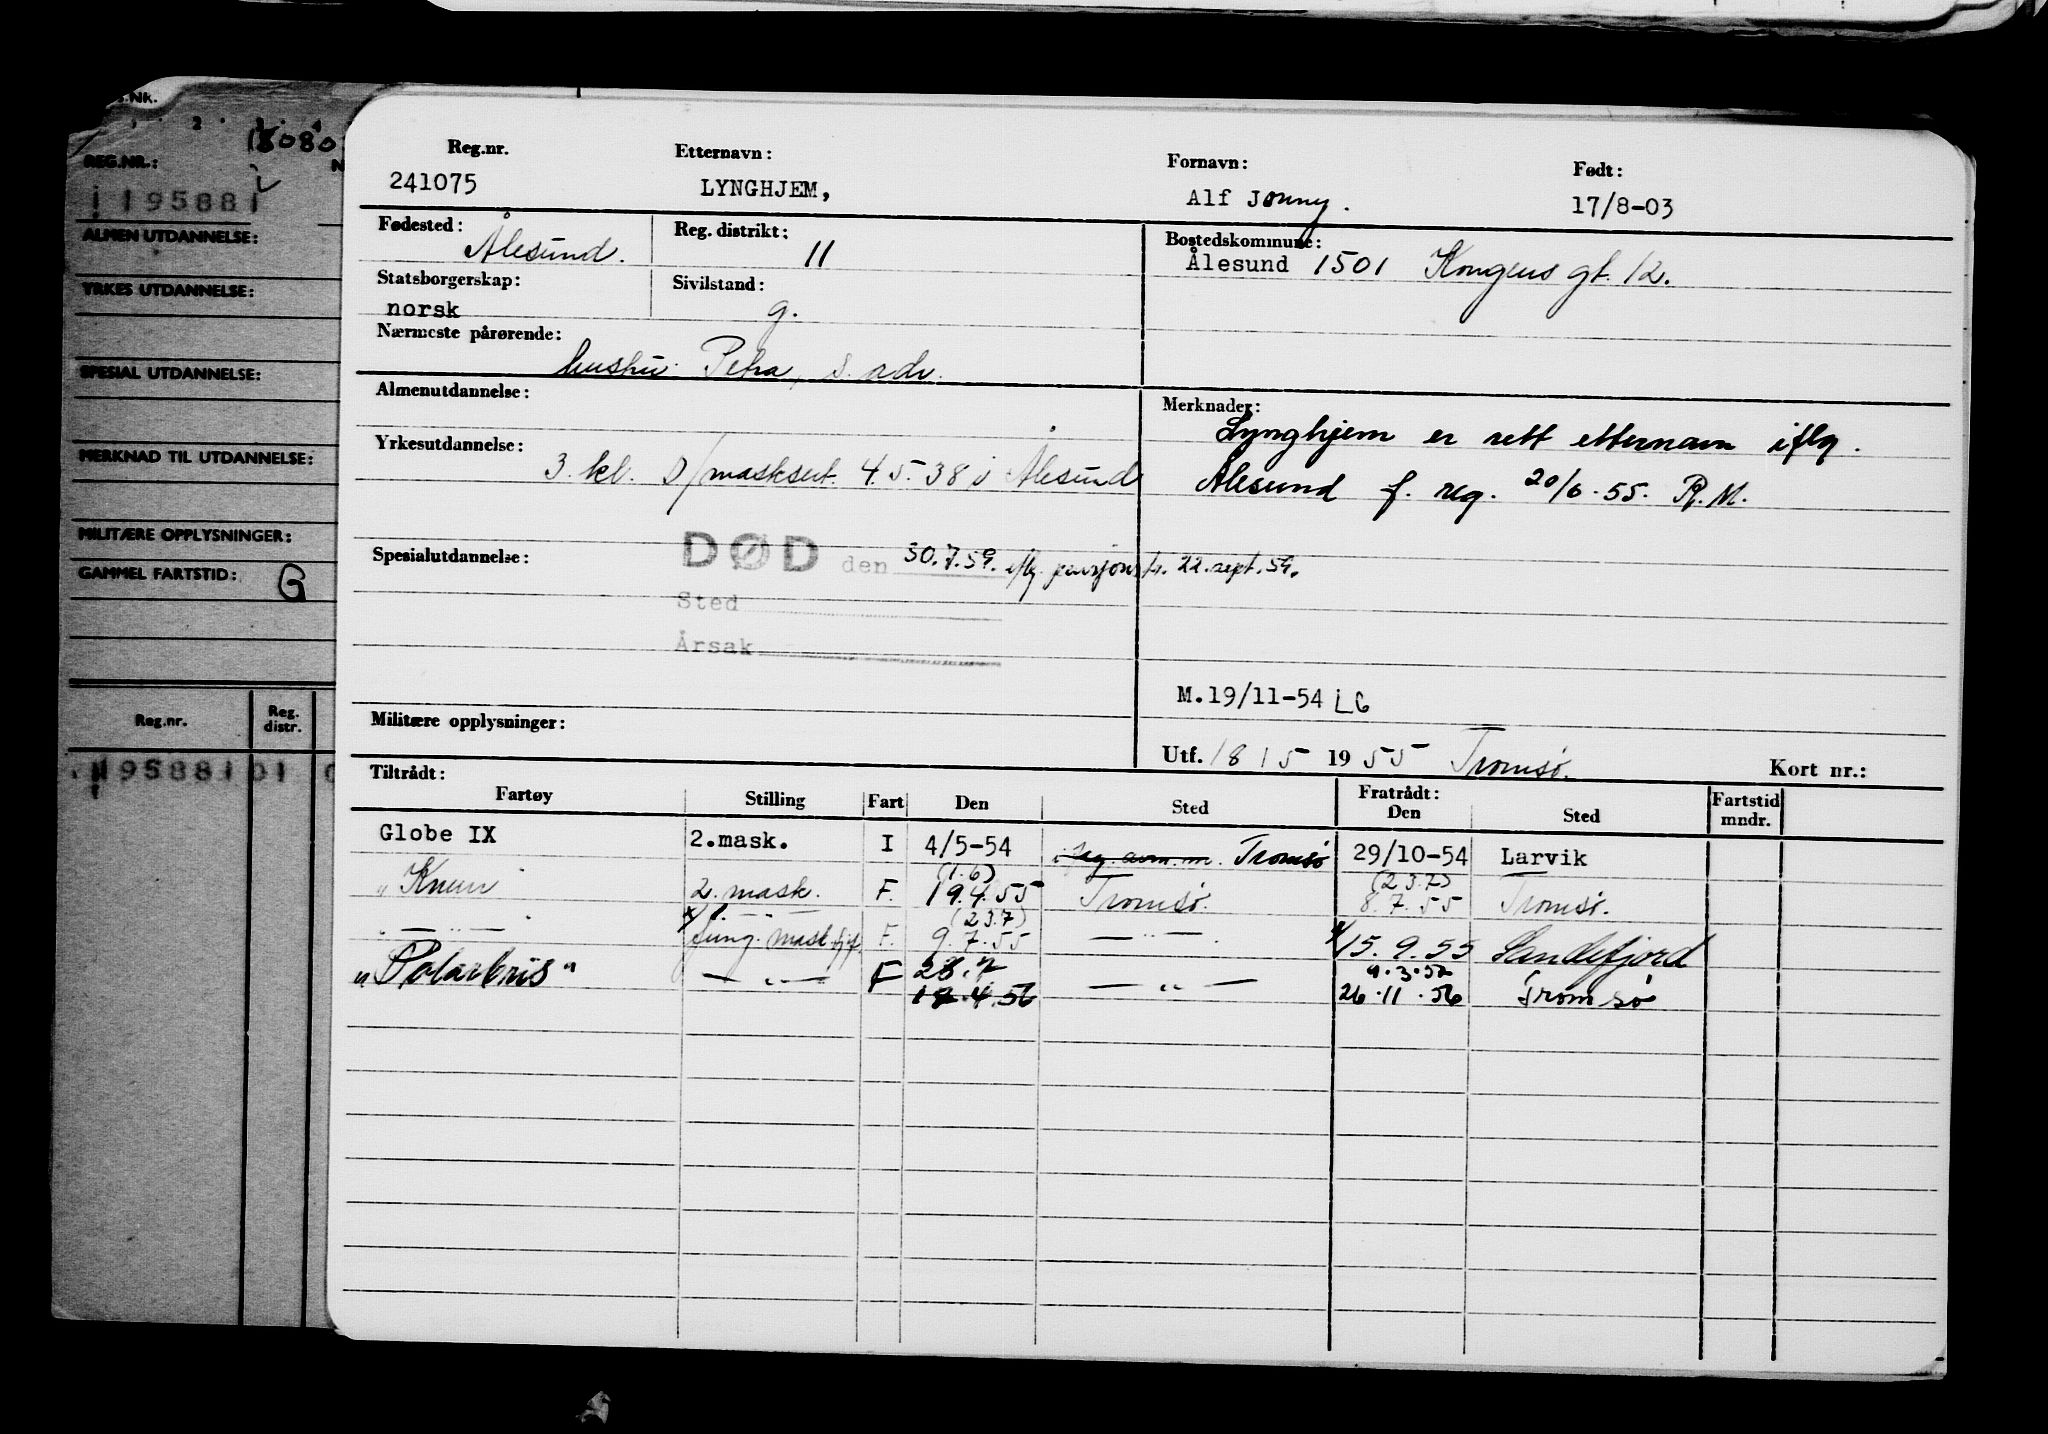 S.Nk.
2 3 4
18080
REG.NR.: N
195881
ALMEN UTDANNELSE:
YRKES UTDANNELSE:
SPESIAL UTDANNELSE:
MERKNAD TIL UTDANNELSE:
MILITÆRE OPPLYSNINGER:
GAMMEL FARTSTID: G
Reg.nr. Reg. distr.
195881 01 0
Reg.nr. Etternavn: Fornavn: Født:
241075 LYNGHJEM, Alf Jonny. 17/8-03
Fødested: Ålesund. Reg. distrikt: 11 Bostedskommune:
Ålesund 1501 Kongens gt. 12.
Statsborgerskap: Sivilstand:
norsk g.
Nærmeste pårørende:
hustru Petra, s. adr.
Almenutdannelse: Merknader:
Lynghjem er rett etternavn iflg.
Yrkesutdannelse:
3. kl. D/masksert. 4.5.38 i Ålesund
Ålesund f. reg. 20/6.55. R.M.
Spesialutdannelse: DØD den 30.7.59. iflg. pensjonstr. 22. sept. 59.
Sted
Årsak
M.19/11-54 LG
Militære opplysninger:
Utf. 18 / 5 1955 Tromsø. Kort nr.:
Tiltrådt: Fratrådt:
Fartøy Stilling Fart Den Sted Den Sted Fartstid mndr.
Globe IX 2.mask. I 4/5-54 Tromsø 29/10-54 Larvik
(1.6) (23.7)
" Knurr " 2. mask. F. 19.4.55 Tromsø. 8.7.55 Tromsø.
(23.7)
" — " — x) 1. — " —
fung. mask.sjef. F. 9.7.55 — " — x) 15.9.55 Sandefjord
"Polarbris" — " — F 28.7 — " — 9.3.57
17.4.56 26.11.56 Tromsø